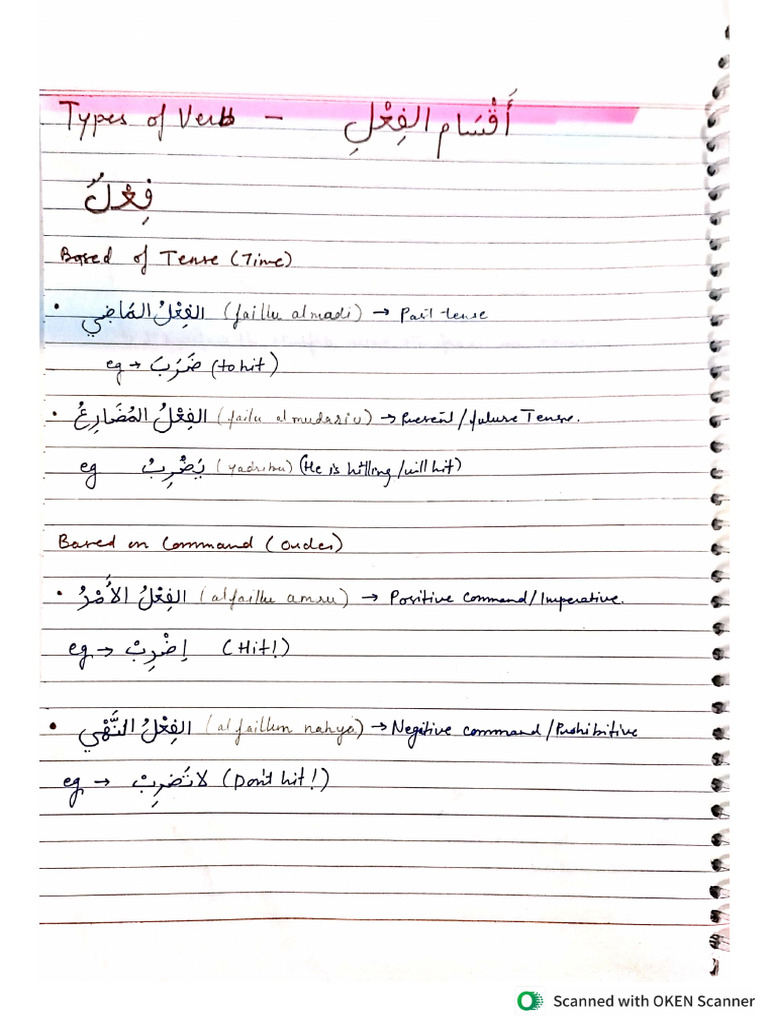 Types of Verb - أَقْسَام الفِعْلِ
فِعْلٌ
Based of Tense (Time)
• الفِعْلُ المَاضِي (faillu almadi) → Past tense
eg → ضَرَبَ (to hit)
• الفِعْلُ المُضَارِعُ (failu almudariu) → Present/future Tense.
eg يَضْرِبُ (yadribu) (He is hitting/will hit)
Based on Command (Order)
• الفِعْلُ الأَمْرُ (alfaillu amru) → Positive command/Imperative.
eg → اِضْرِبْ (Hit!)
• الفِعْلُ النَّهْي (alfaillun nahya) → Negitive command/Prohibitive
eg → لا تَضرِبْ (Don't hit!)
Scanned with OKEN Scanner